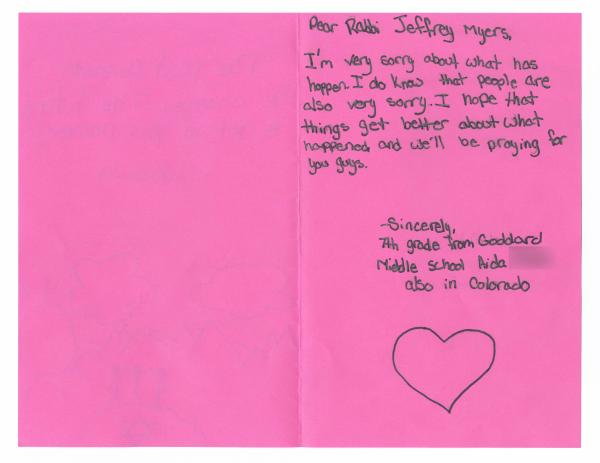 Dear Rabbi Jeffrey Myers,
I'm very sorry about what has
happen. I do know that people are
also very sorry. I hope that
things get better about what
happened and we'll be praying for
you guys.
-Sincerely,
7th grade from Goddard
Middle school Aida
also in Colorado